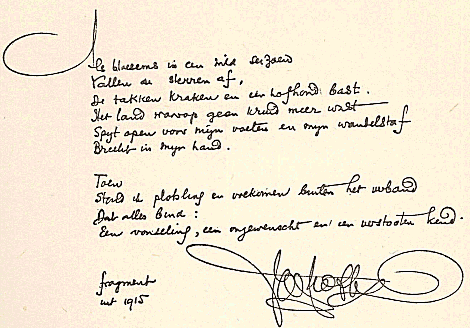 Als bloesems in een wild seizoen
Vallen de sterren af,
De takken kraken en een hofhond bast.
Het land waarop geen kruid meer wast
Spijt open voor mijn voeten en mijn wandelstaf
Breekt in mijn hand.
Toen
Stond ik plotsling en volkomen buiten het verband
Dat alles bind:
Een vondeling, een ongewenscht en een verstooten kind.
fragment
uit 1915